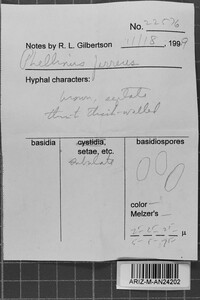 No. 22576
Notes by R. L. Gilbertson 11/18, 1999
Phellinus ferreus
Hyphal characters:
brown, septate
thick-walled
basidia cystidia, basidiospores
setae, etc.
subulate
color
Melzer's -
µ
ARIZ-M-AN24202